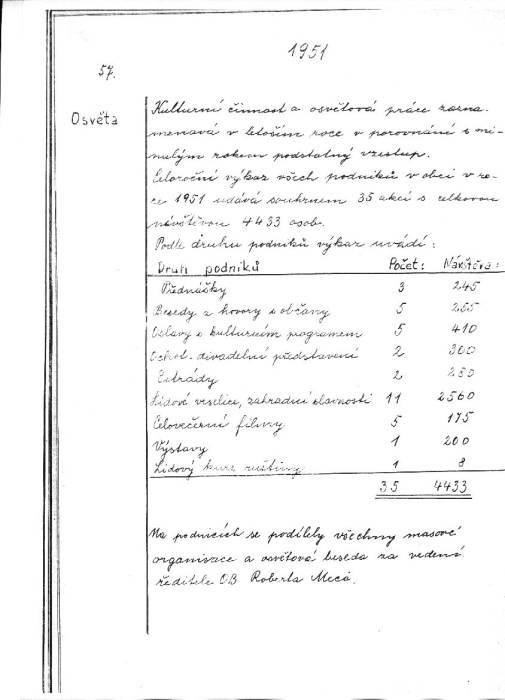 1951
57.
Osvěta
Kulturní činnost a osvětová práce zazna-
menává v letošním roce v porovnání s mi-
nulým rokem podstatný vzestup.
Celoroční výkaz všech podniků v obci v ro-
ce 1951 udává souhrnem 35 akcí s celkovou
návštěvou 4433 osob.
Podle druhu podniků výkaz uvádí:
Druh podniků Počet: Návštěva:
Přednášky 3 245
Besedy a hovory s občany 5 255
Oslavy s kulturním programem 5 410
Ochot. divadelní představení 2 300
Estrády 2 280
Lidové veselice, zahradní slavnosti 11 2560
Celovečerní filmy 5 175
Výstavy 1 200
Lidový kurs ruštiny 1 8
35 4433
Na podnicích se podílely všechny masové
organisace a osvětová beseda za vedení
ředitele OB Roberta